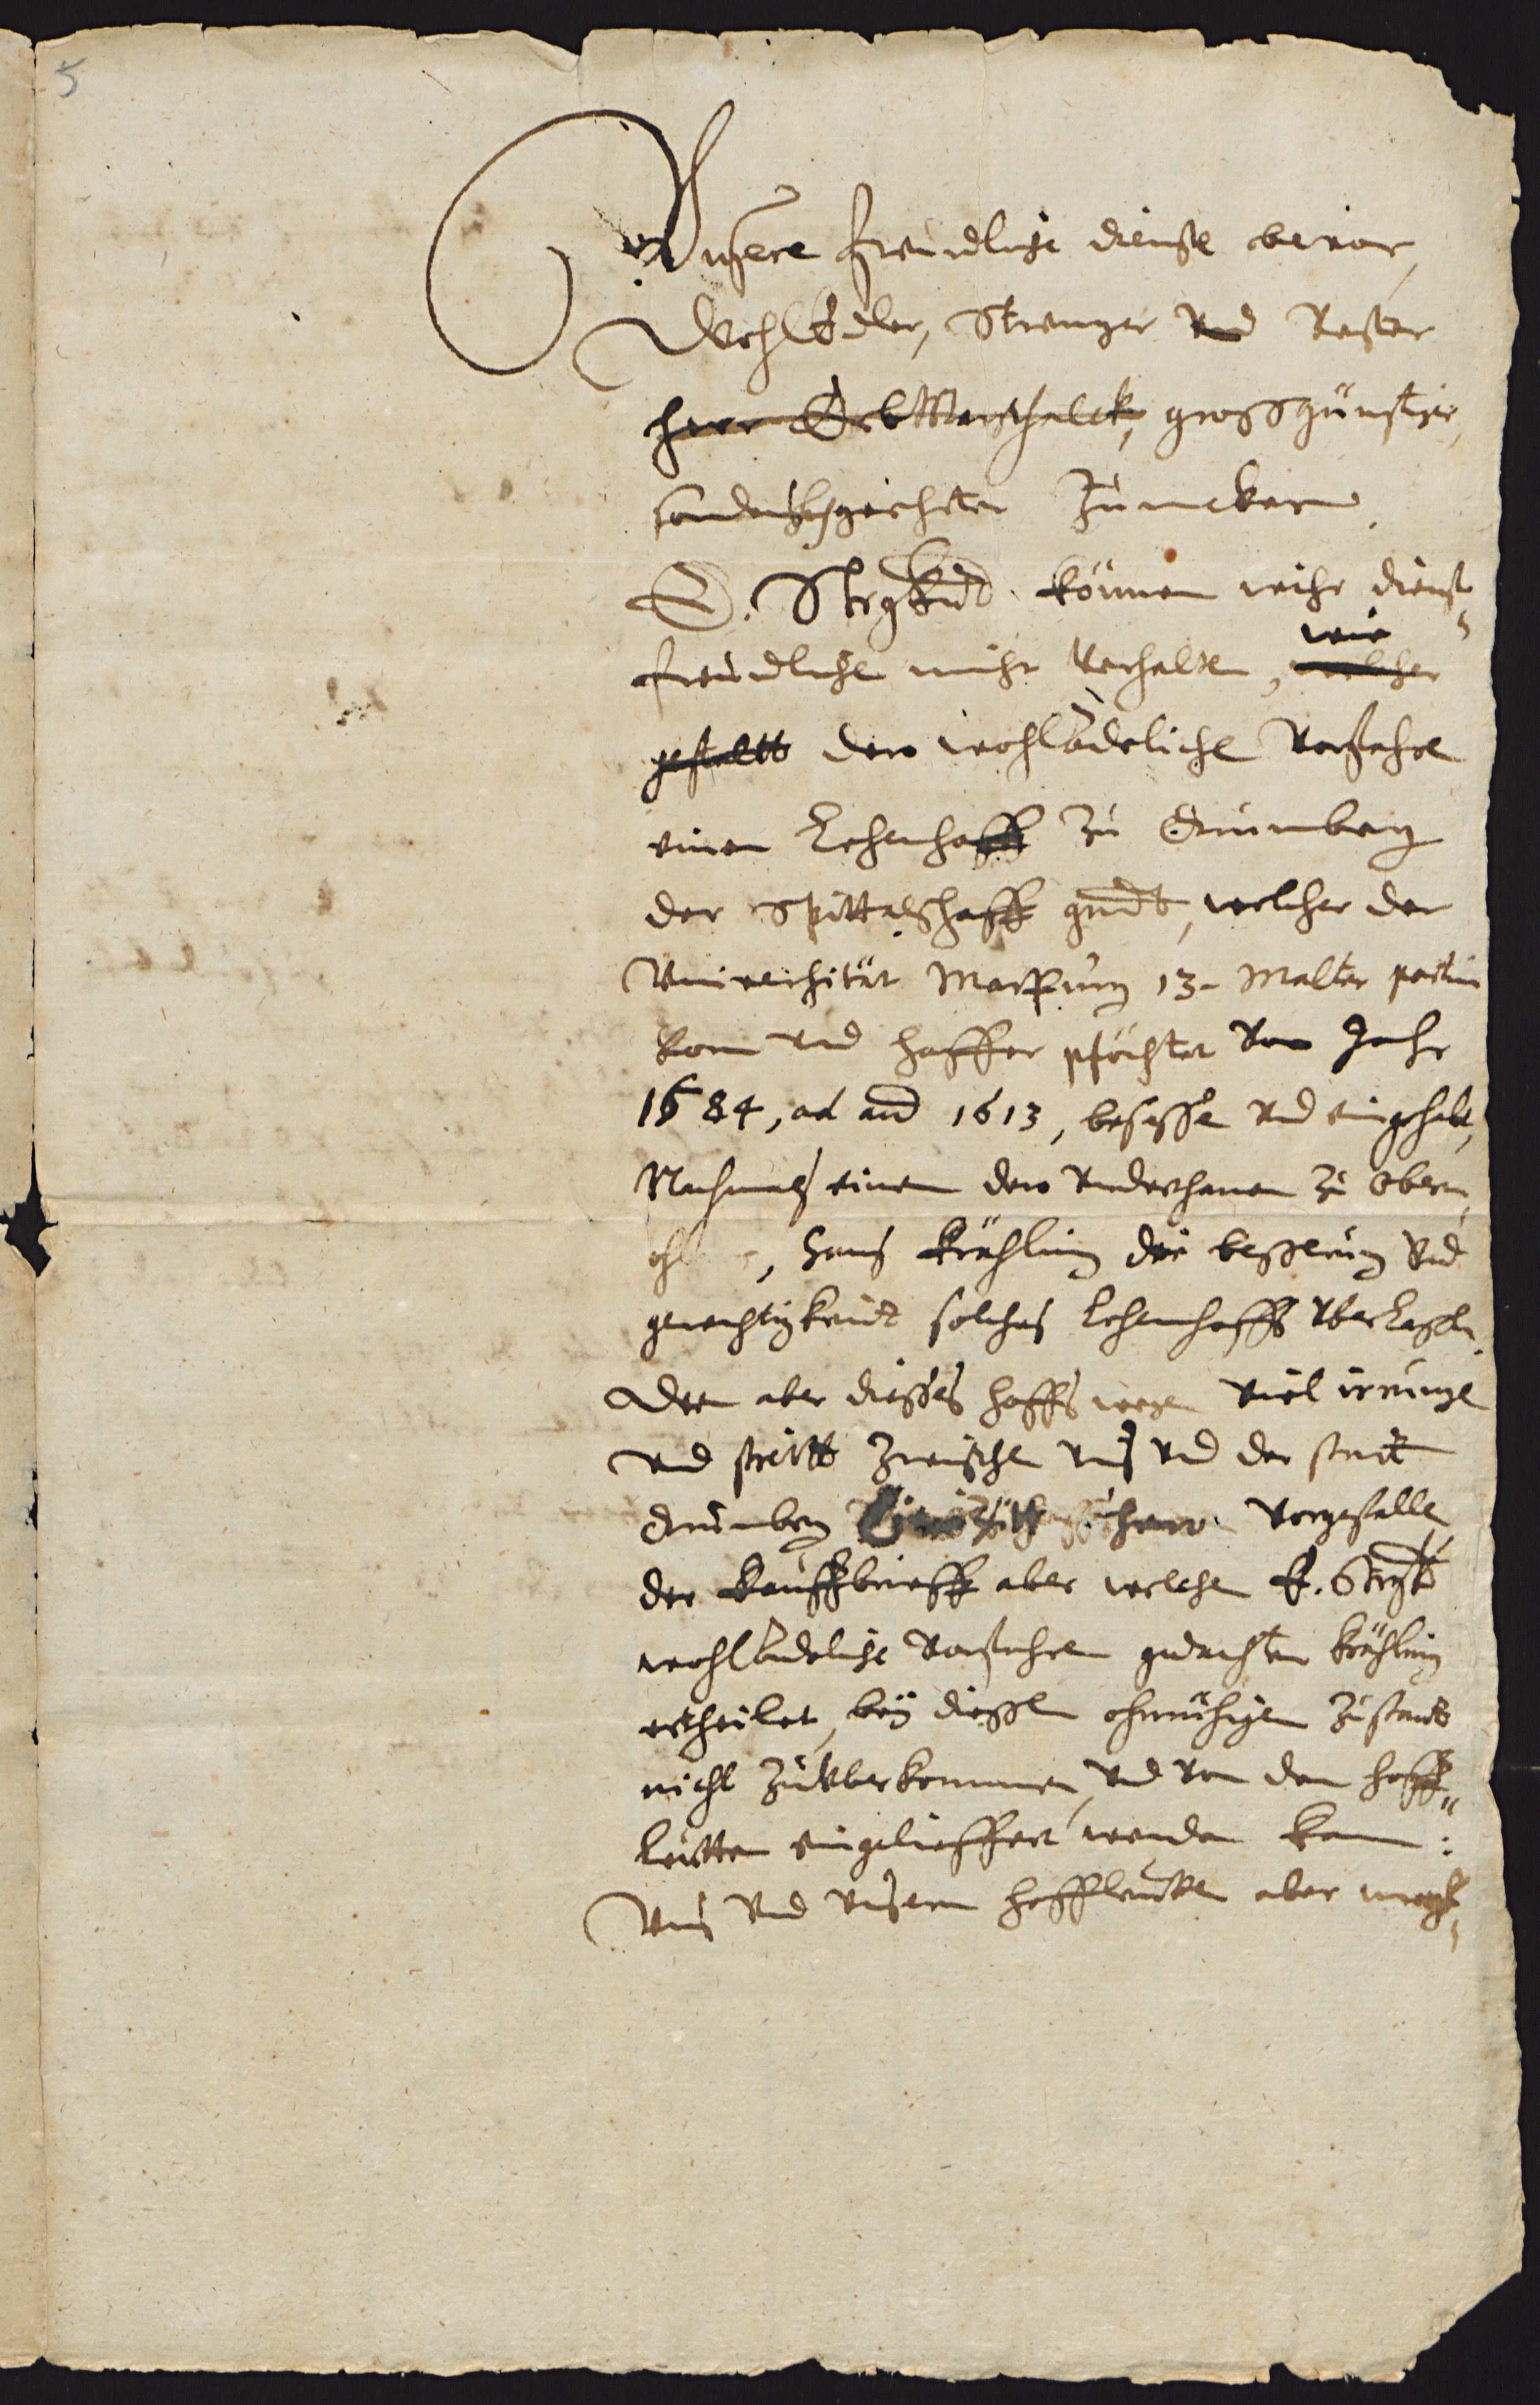 5
Unsere freundliche dienste bevor,
WohlEdler, Strenger Und Vester
Herr ErbMarschalck, grossgünstiger,
sonders hochgeehrter Junckherr.
E. Strgkeit. können wihr dienst-
freundlichen nicht Verhalten, wie welcher
gestaltt dero wohlAdeliche Vorfahren
einen Lehenhoff zu Grünnberg
der Spittalshoff gndt, welcher der
Universitüt Marpurg 13- Malter partim
Korn und haffer pfächtet Von Jahr
1584, ad and 1613, besessen und eingehabt,
Nachmals einem dero Underthanen zu Obern
ohm, Hans Kröhling die besserung Und
gerechtigkeidt solches Lehenhoffs Uberlassen.
Den aber dieses Hoffs wegen Viel irrunge
und streitt zwischen uns und der stadt
Grünberg Vorgefallen
der Kauffbrieff aber welchen E. Strgkt
wohlAdeliche Vorfahren gedachten Kröhling
ertheilet, beÿ diessen ohnruhigen zustandt
nicht zuUberkommen, und von den hoff-
leütten eingelieffert werden kan:
Uns Und Unsern hoffleutten aber